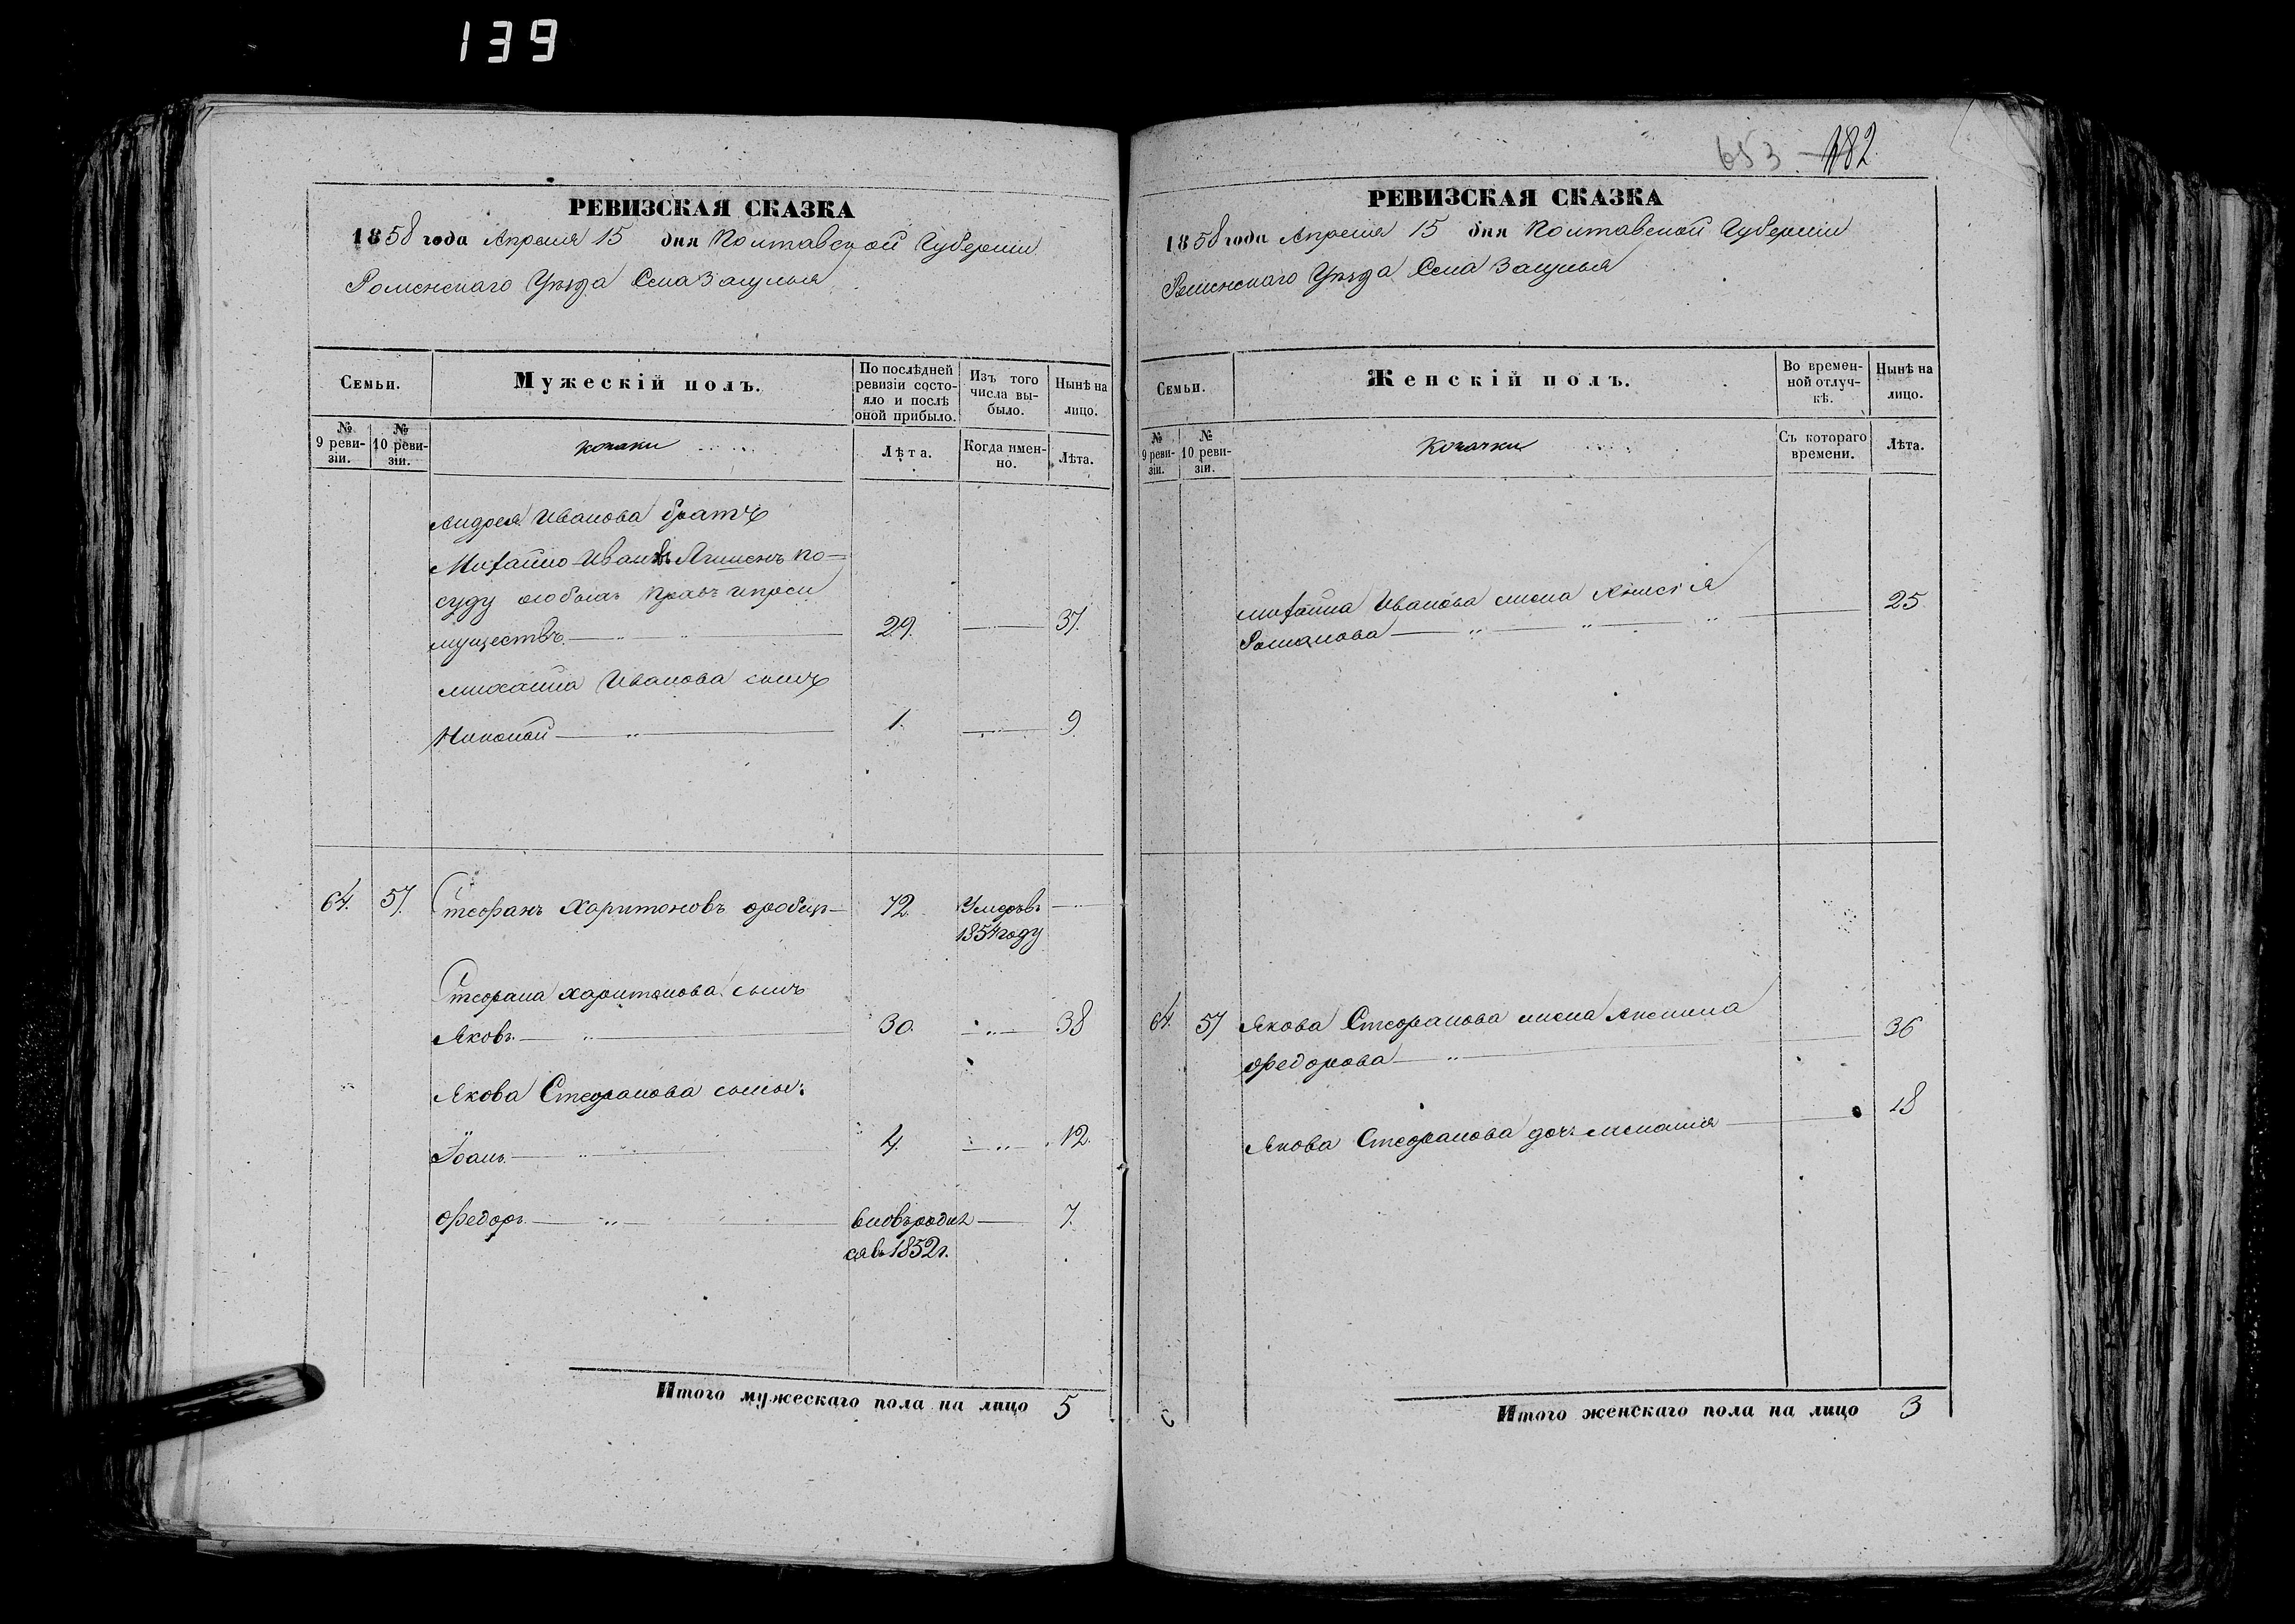 139
РЕВИЗСКАЯ СКАЗКА
1858 года Апреля 15 дня Полтавской Губернiи
Роменскаго Уѣзда Села Засулья
Семьи.
Мужескiй полъ.
По послѣдней
ревизiи состо-
яло и послѣ
оной прибыло.
Изъ того
числа вы-
было.
Нынѣ на
лицо.
№
9 реви-
зiи.
№
10 реви-
зiи.
козаки
Лѣта.
Когда имен-
но.
Лѣта.
Андрея Иванова братъ
Михайло Ивановъ по-
суду
муществъ 29. 37.
михайла Иванова сынъ
Николай 1. 9.
64. 57. Стефанъ Харитоновъ 72. Умеръ въ
1854 году
Стефана харитонова сынъ
Яковъ 30. 38
Якова Стефанова сыны:
Iоанъ 4. 12.
Федоръ вновь родил 7.
ся въ 1852 г.
Итого мужескаго пола на лицо 5
653 182
РЕВИЗСКАЯ СКАЗКА
1858 года Апреля 15 дня Полтавской Губернiи
Роменскаго Уѣзда Села Засулья
Семьи.
Женскiй полъ.
Во времен-
ной отлуч-
кѣ.
Нынѣ на
лицо.
№
9 реви-
зiи.
№
10 реви-
зiи.
Козачки
Съ котораго
времени.
Лѣта.
михайла Иванова жена 25
Романова
64. 57 Якова Стефанова жена Аксинiа
Федорова 36
Якова Стефанова дочь меланiя 18
Итого женскаго пола на лицо 3